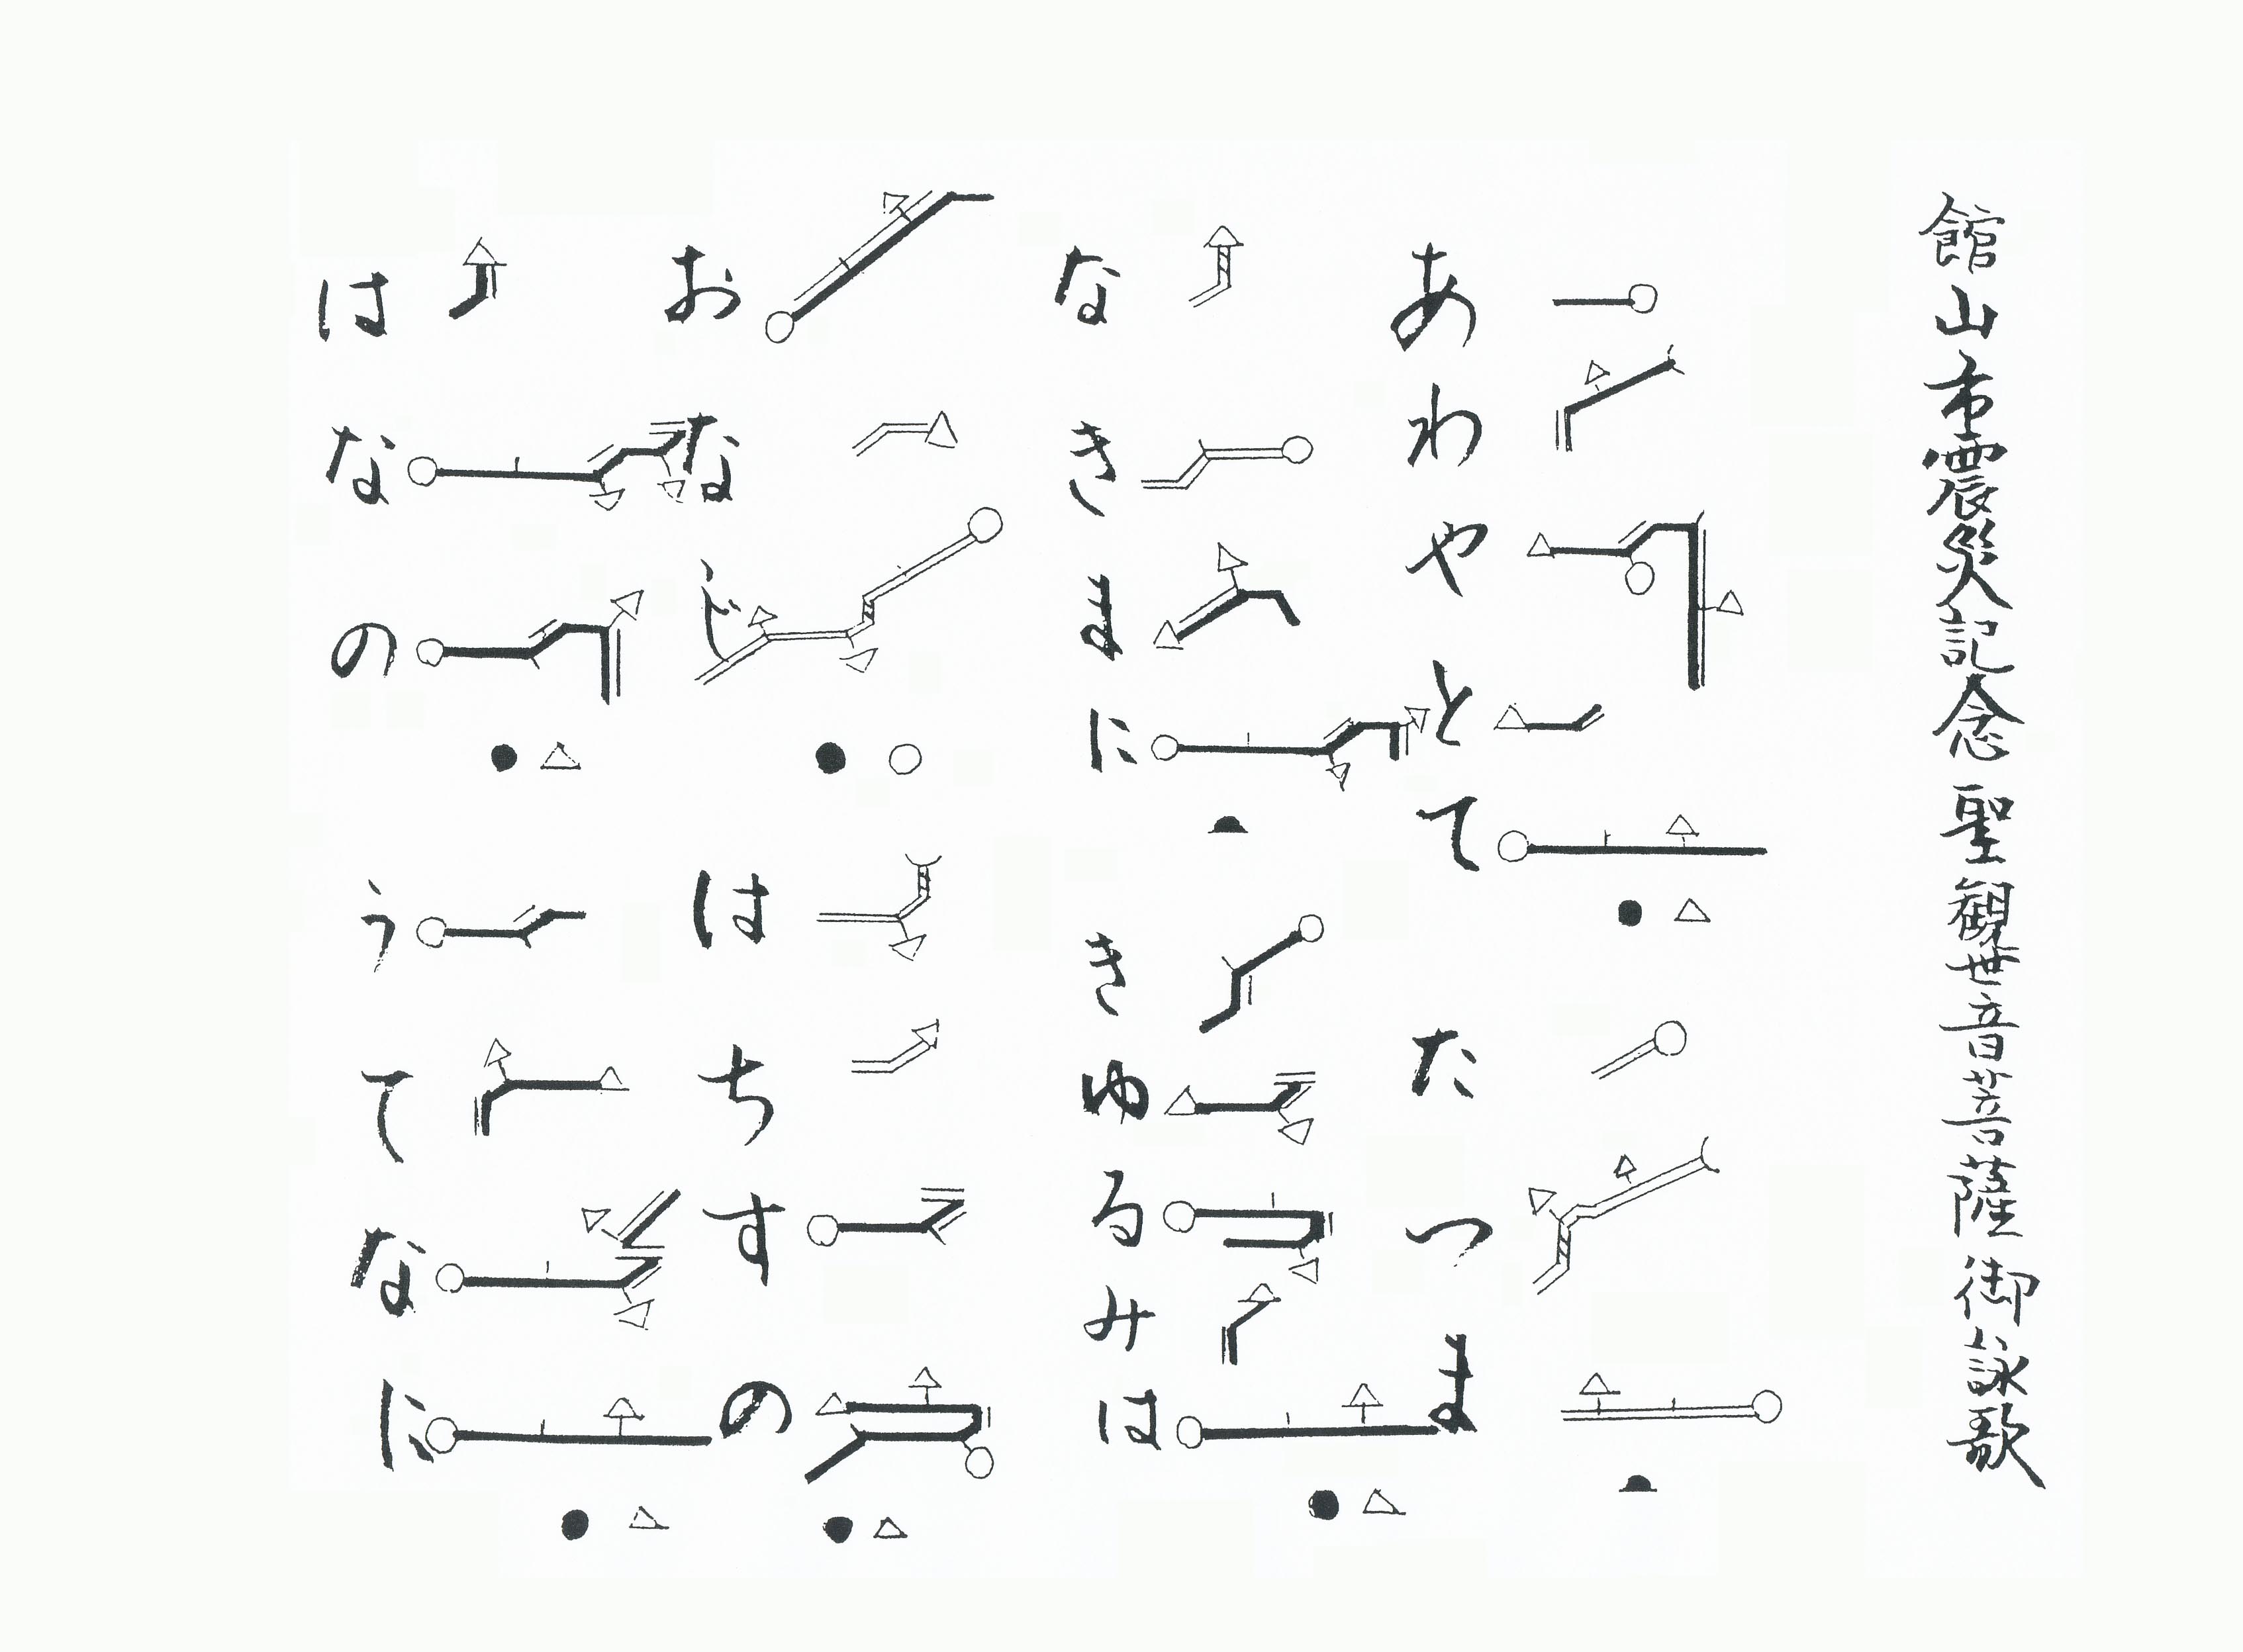 館山市震災記念 聖観世音菩薩 御詠歌
あわやとて たつま
なきまに きゆるみは
おなじ はちすの
はなの うてなに